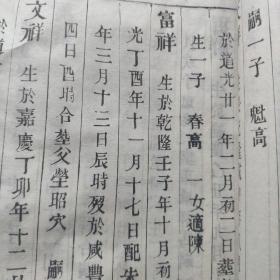 嗣一子 魁高
於道光廿一年二月初二日塟
生一子 春高 一女適陳
富祥 生於乾隆壬子年十月
光丁酉年十一月十七日配朱
年三月十三日辰時歿於咸豐
四日酉時合塟父塋昭穴 嗣
文祥 生於嘉慶丁卯年十二